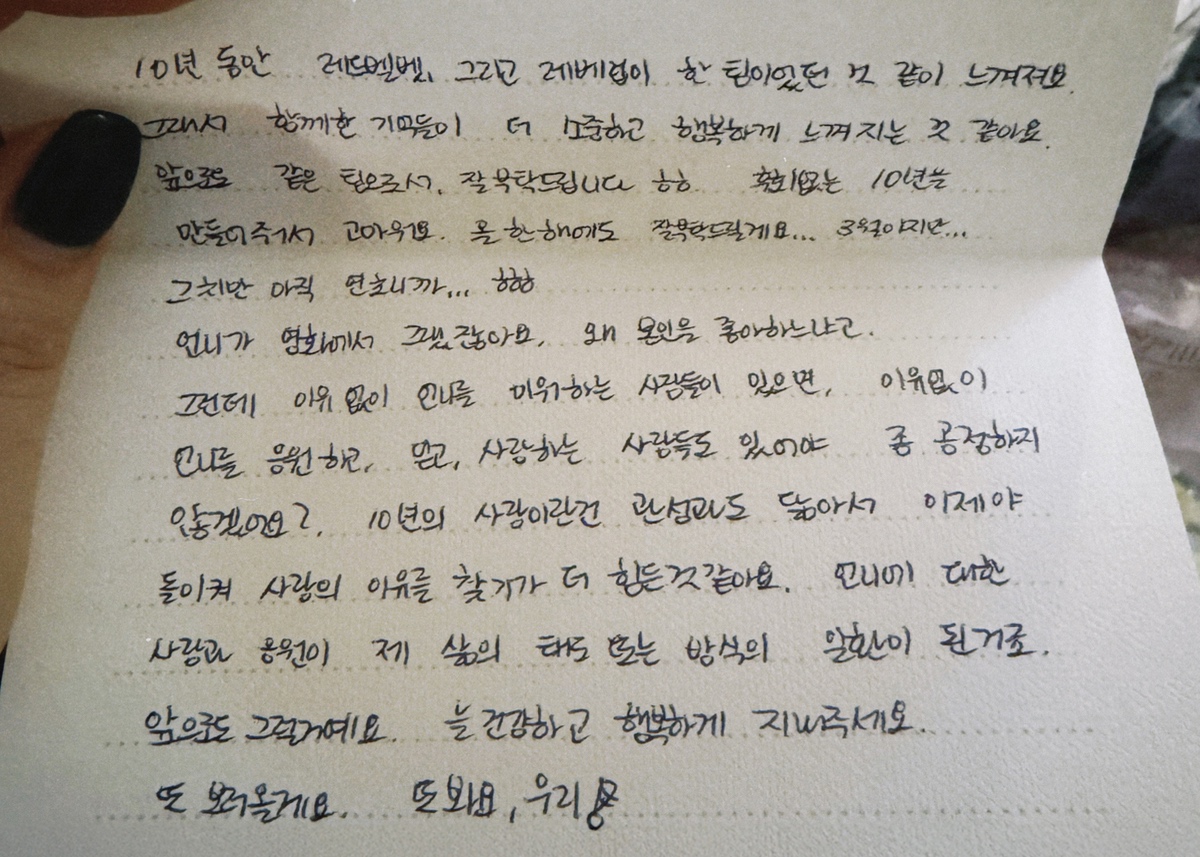 10년 동안 레드벨벳, 그리고 레베럽이 한 팀이었던 것 같이 느껴져요.
그래서 함께한 기억들이 더 소중하고 행복하게 느껴지는 것 같아요.
앞으로도 같은 팀으로서, 잘 부탁드립니다 ㅎㅎ 후회없는 10년을
만들어주셔서 고마워요. 올 한해에도 잘부탁드릴게요... 3월이지만...
그치만 아직 연초니까... ㅎㅎㅎ
언니가 영화에서 그랬잖아요, 왜 본인을 좋아하느냐고.
그런데 이유 없이 언니를 미워하는 사람들이 있으면, 이유없이
언니를 응원하고, 믿고, 사랑하는 사람들도 있어야 좀 공정하지
않겠어요?. 10년의 사랑이란건 관성과도 닮아서 이제야
돌이켜 사랑의 이유를 찾기가 더 힘든것같아요. 언니에 대한
사랑과 응원이 제 삶의 태도 또는 방식의 일환이 된거죠.
앞으로도 그럴거예요. 늘 건강하고 행복하게 지내주세요.
또 보러올게요. 또 봐요, 우리